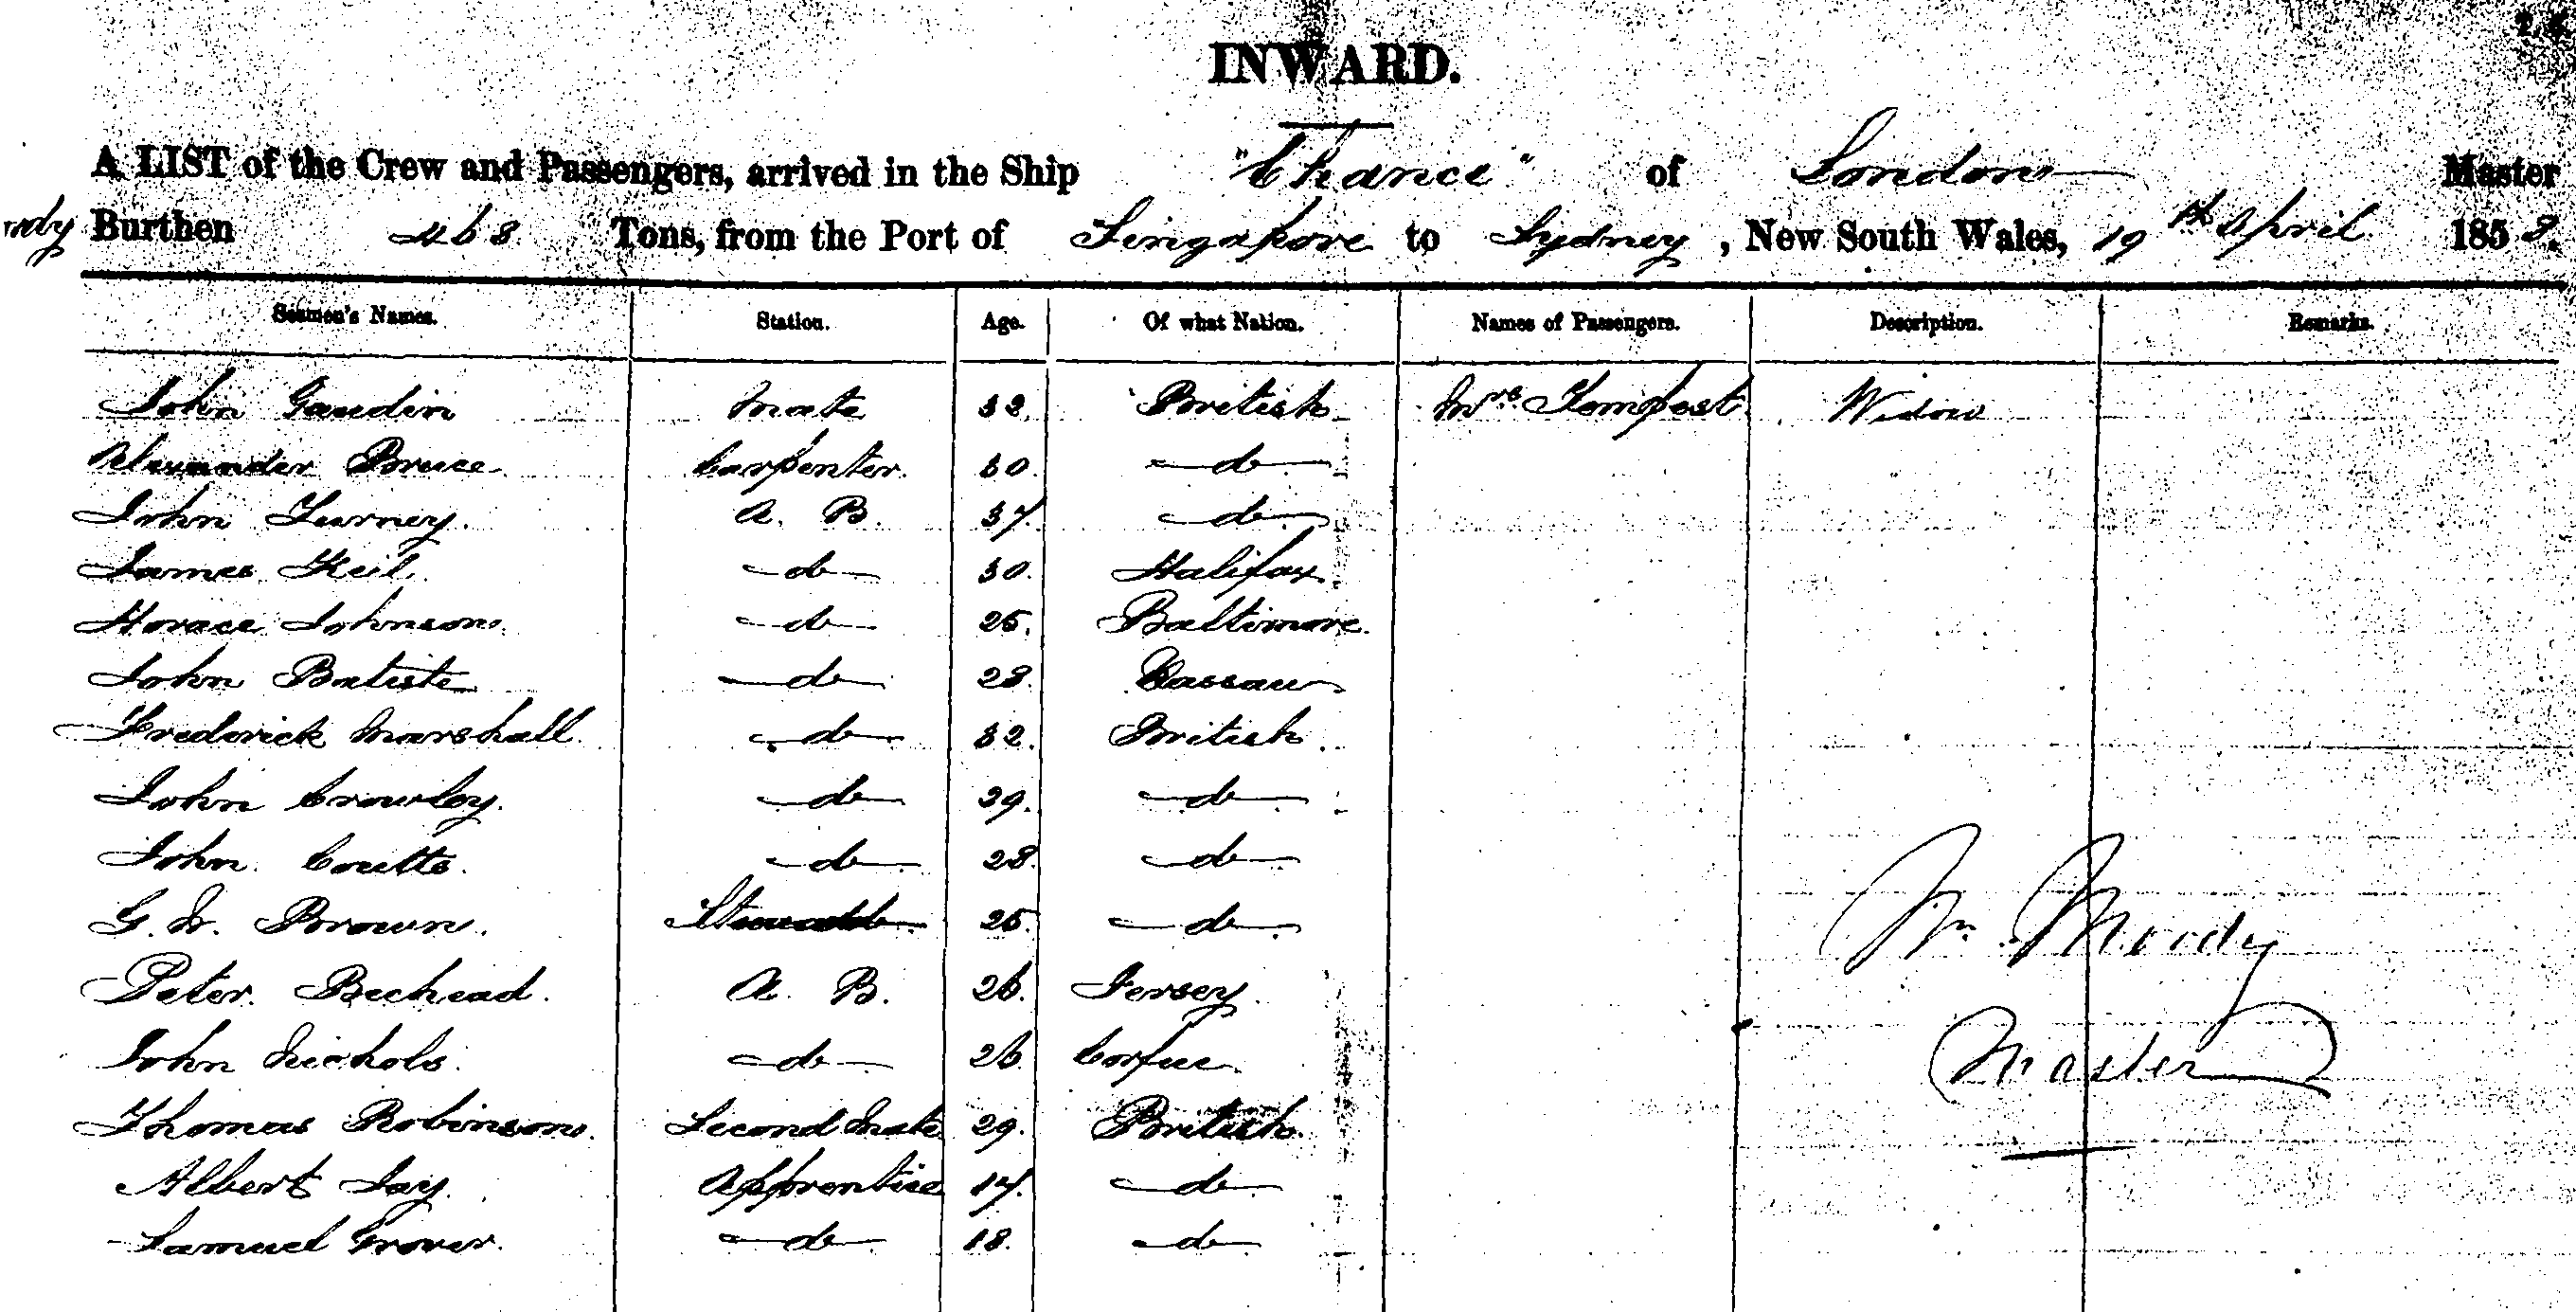 INWARD.
A LIST of the Crew and Passengers, arrived in the Ship "Chance" of London Master
Burthen 468 Tons, from the Port of Singapore to Sydney, New South Wales, 19th April 1858.
Seamen's Names. Station. Age. Of what Nation. Names of Passengers. Description. Remarks.
John Gaudin Mate 32. British Mrs Tempest Widow
Alexander Bruce Carpenter. 30. do
John Turney. A. B. 37. do
James Keil. do 30. Halifax.
Horace Johnson. do 25. Baltimore.
John Batiste do 28. Nassau
Frederick Marshall do 32. British.
John Crowley. do 29. do
John Coutts. do 28. do
G. W. Brown. Steward 25. do
Peter Bechead. A. B. 26. Jersey.
John Nichols. do 26. Corfu
Thomas Robinson. Second Mate 29. British.
Albert Jay. Apprentice 17. do
Samuel Grover. do 18. do
Wm Moody
Master